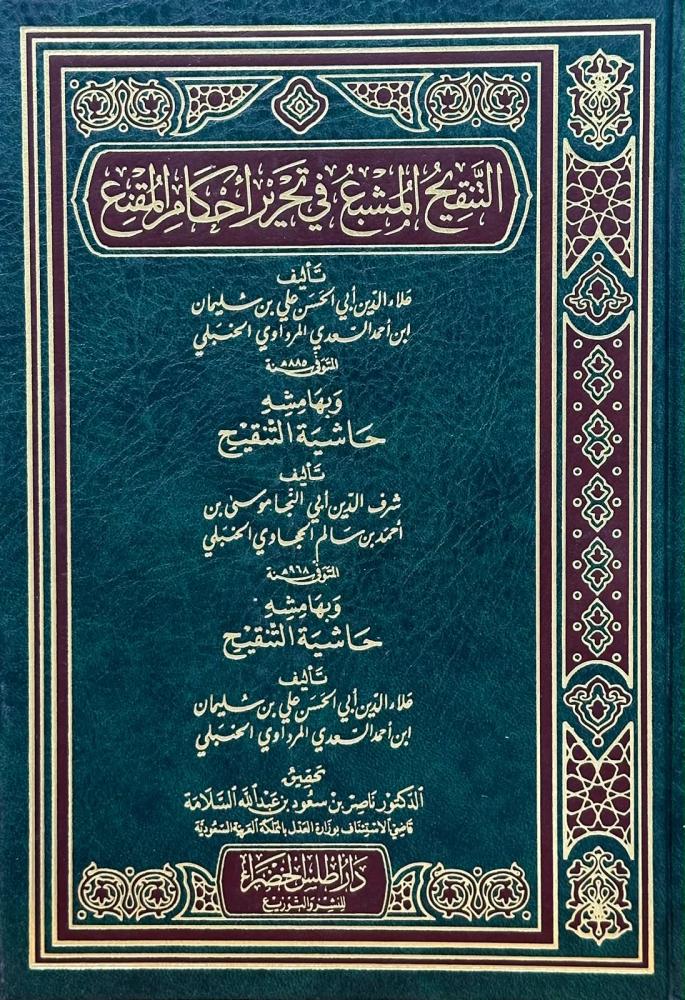 التَّنقِيحُ المُشْبِعُ في تَحْرِيرِ أَحْكَامِ المُقْنِعِ
تَأليف
عَلاء الدّين أبي الحَسَن عَلي بن سُليمان
ابن أحمد السَّعدي المرداوي الحنبَلي
المتوفى سنة ٨٨٥هـ
وَبهَامِشِهِ
حَاشِيَة التَّنقِيْحِ
تَأليف
شرف الدّين أبي النجا موسى بن
أحمَد بن سَالم الحجاوي الحنبَلي
المتوفى سنة ٩٦٨هـ
وَبهَامِشِهِ
حَاشِيَة التَّنقِيْحِ
تَأليف
عَلاء الدّين أبي الحَسَن عَلي بن سُليمان
ابن أحمد السَّعدي المرداوي الحنبَلي
تحقِيق
الدّكتور نَاصِر بن سعُود بن عَبد الله السَّلَامَة
قَاضِي الاسْتِئنَاف بوزَارة العَدل بالمملكة العَرَبيّة السّعُوديّة
دَار أطلس الخضراء
للنشر والتوزيع